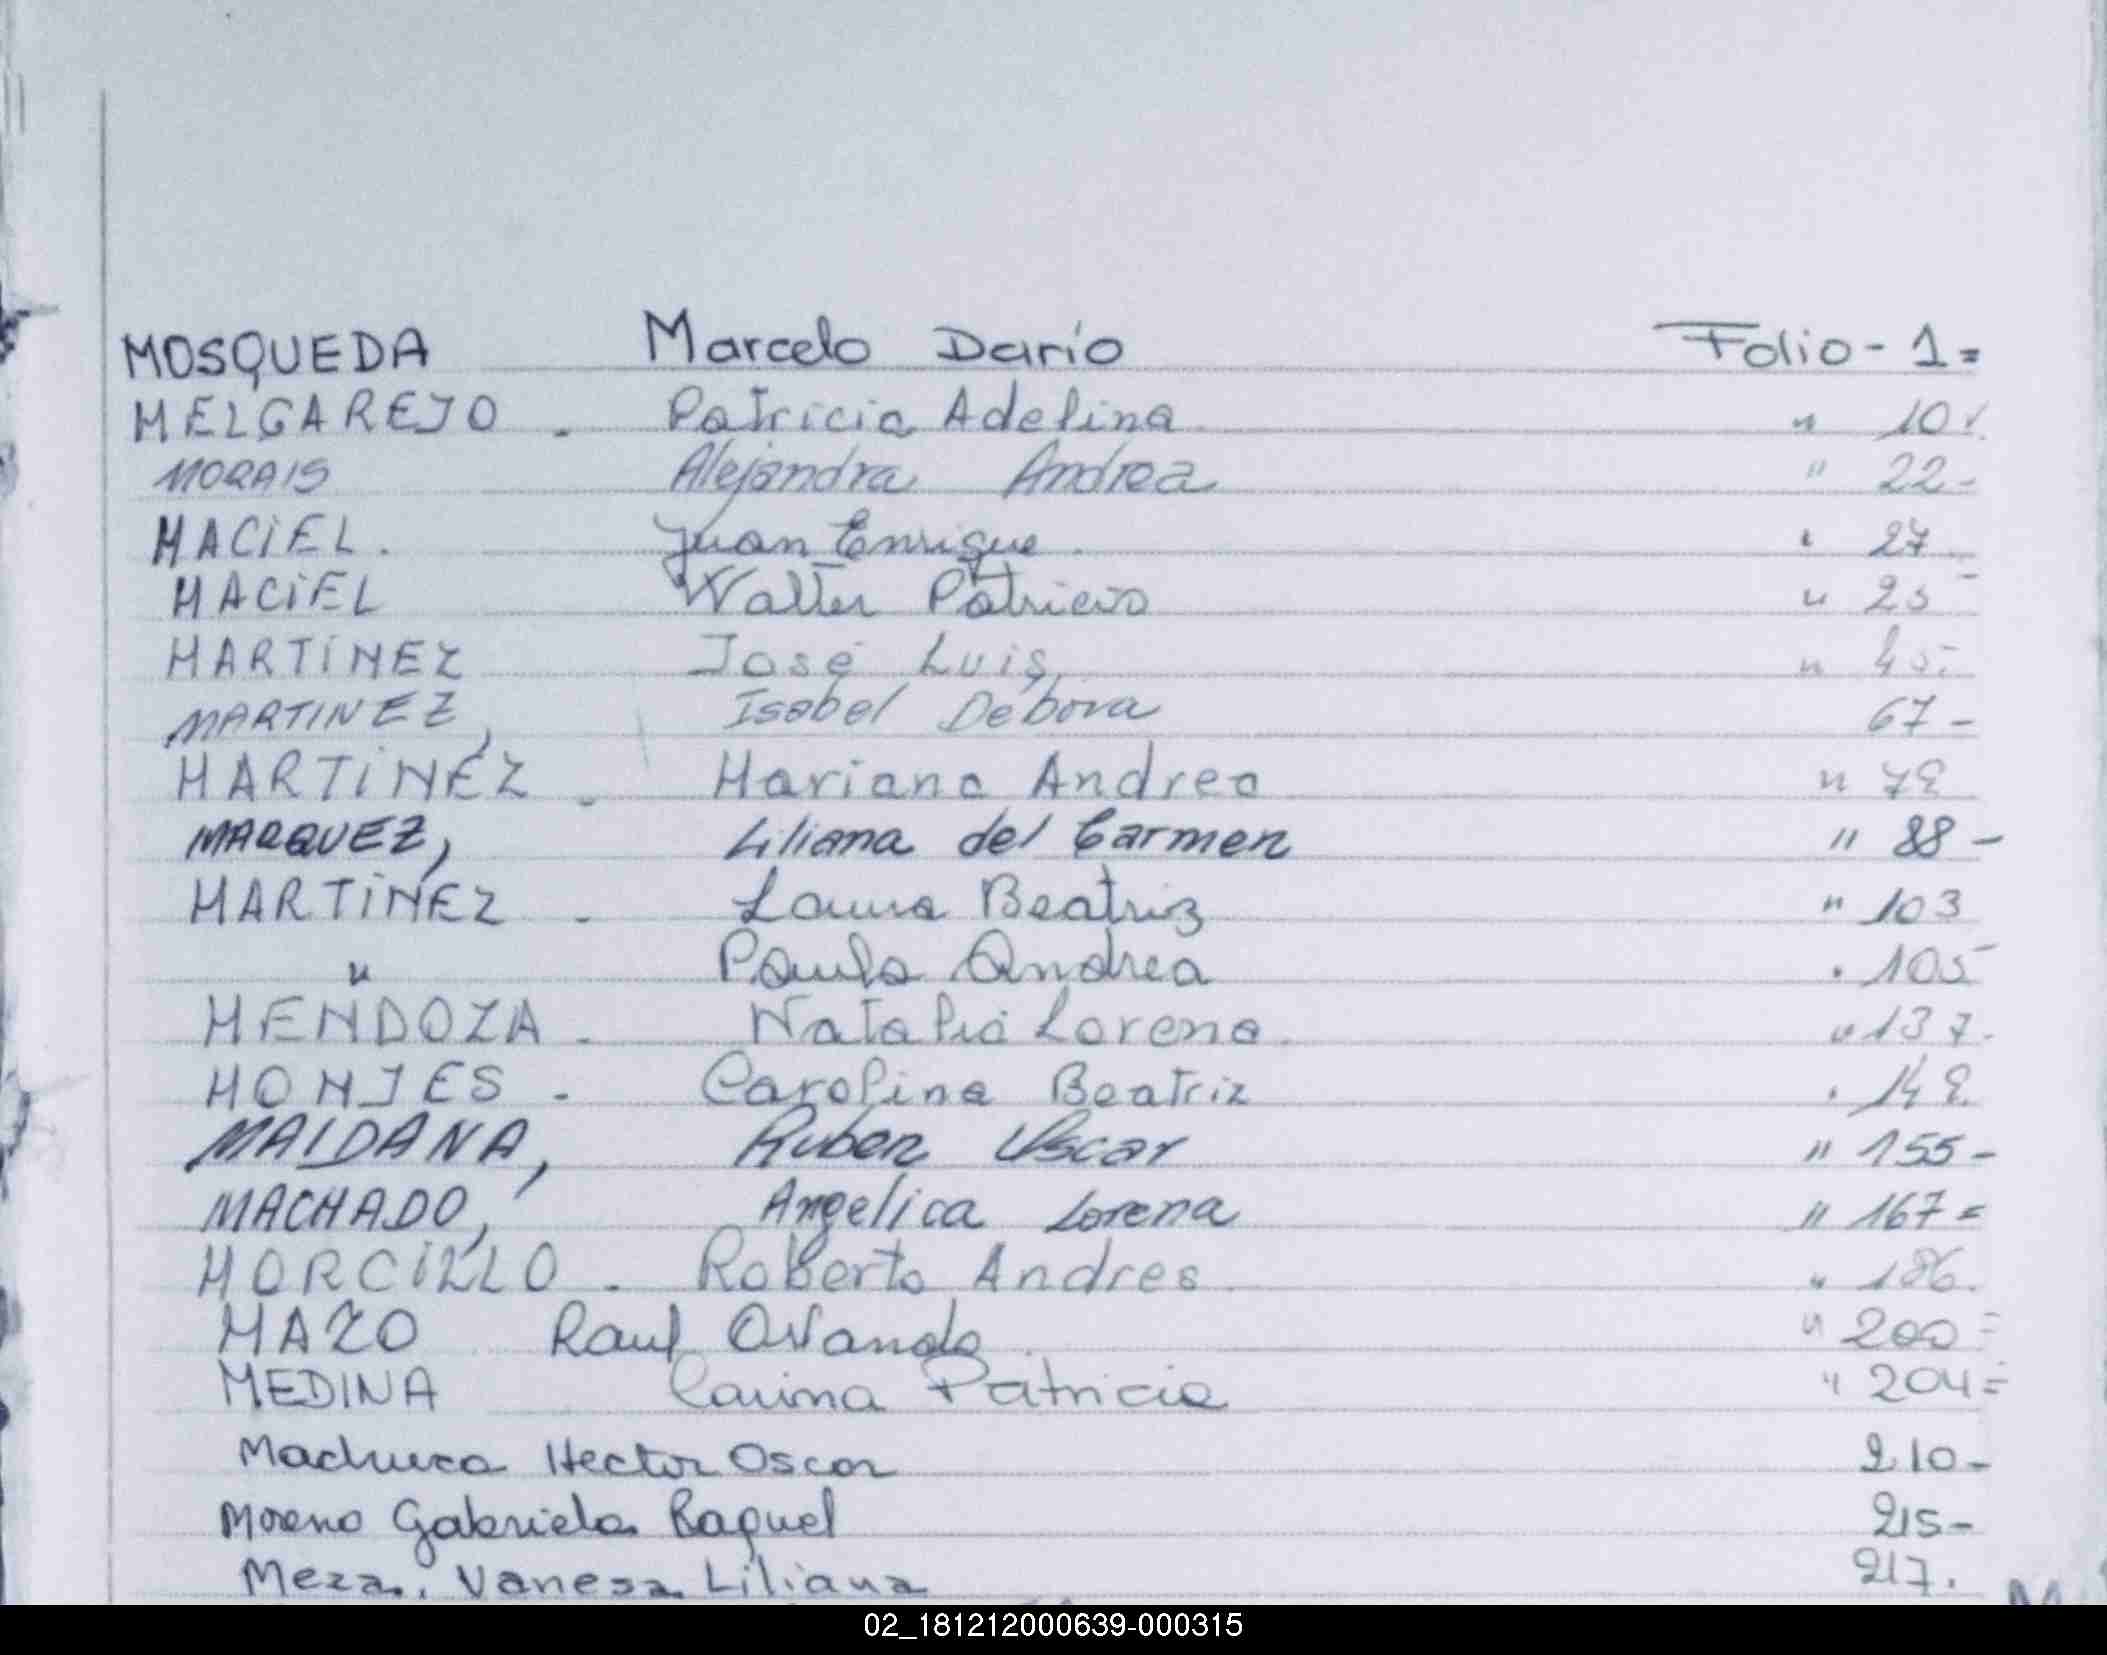 MOSQUEDA Marcelo Darío Folio - 1=
MELGAREJO - Patricia Adelina " 10
MORAIS Alejandra Andrea " 22-
MACIEL. Juan Enrique " 27
MACIEL Walter Patricio " 25-
MARTÍNEZ José Luis " 45-
MARTINEZ, Isabel Debora 67-
MARTÍNEZ - Mariana Andrea " 78
MARQUEZ, Liliana del Carmen " 88-
MARTÍNEZ - Laura Beatriz " 103
" Paula Andrea " 105
MENDOZA - Natalia Lorena " 137-
MONJES - Carolina Beatriz " 148
MAIDANA, Ruben Oscar " 155-
MACHADO, Angelica Lorena " 167=
MORCILLO - Roberto Andres " 186.
MAZO Raul " 200=
MEDINA Carina Patricia " 204=
Machuca Hector Oscar 210-
Moreno Gabriela Raquel 215-
Meza, Vanesa Liliana 217.
02_181212000639-000315